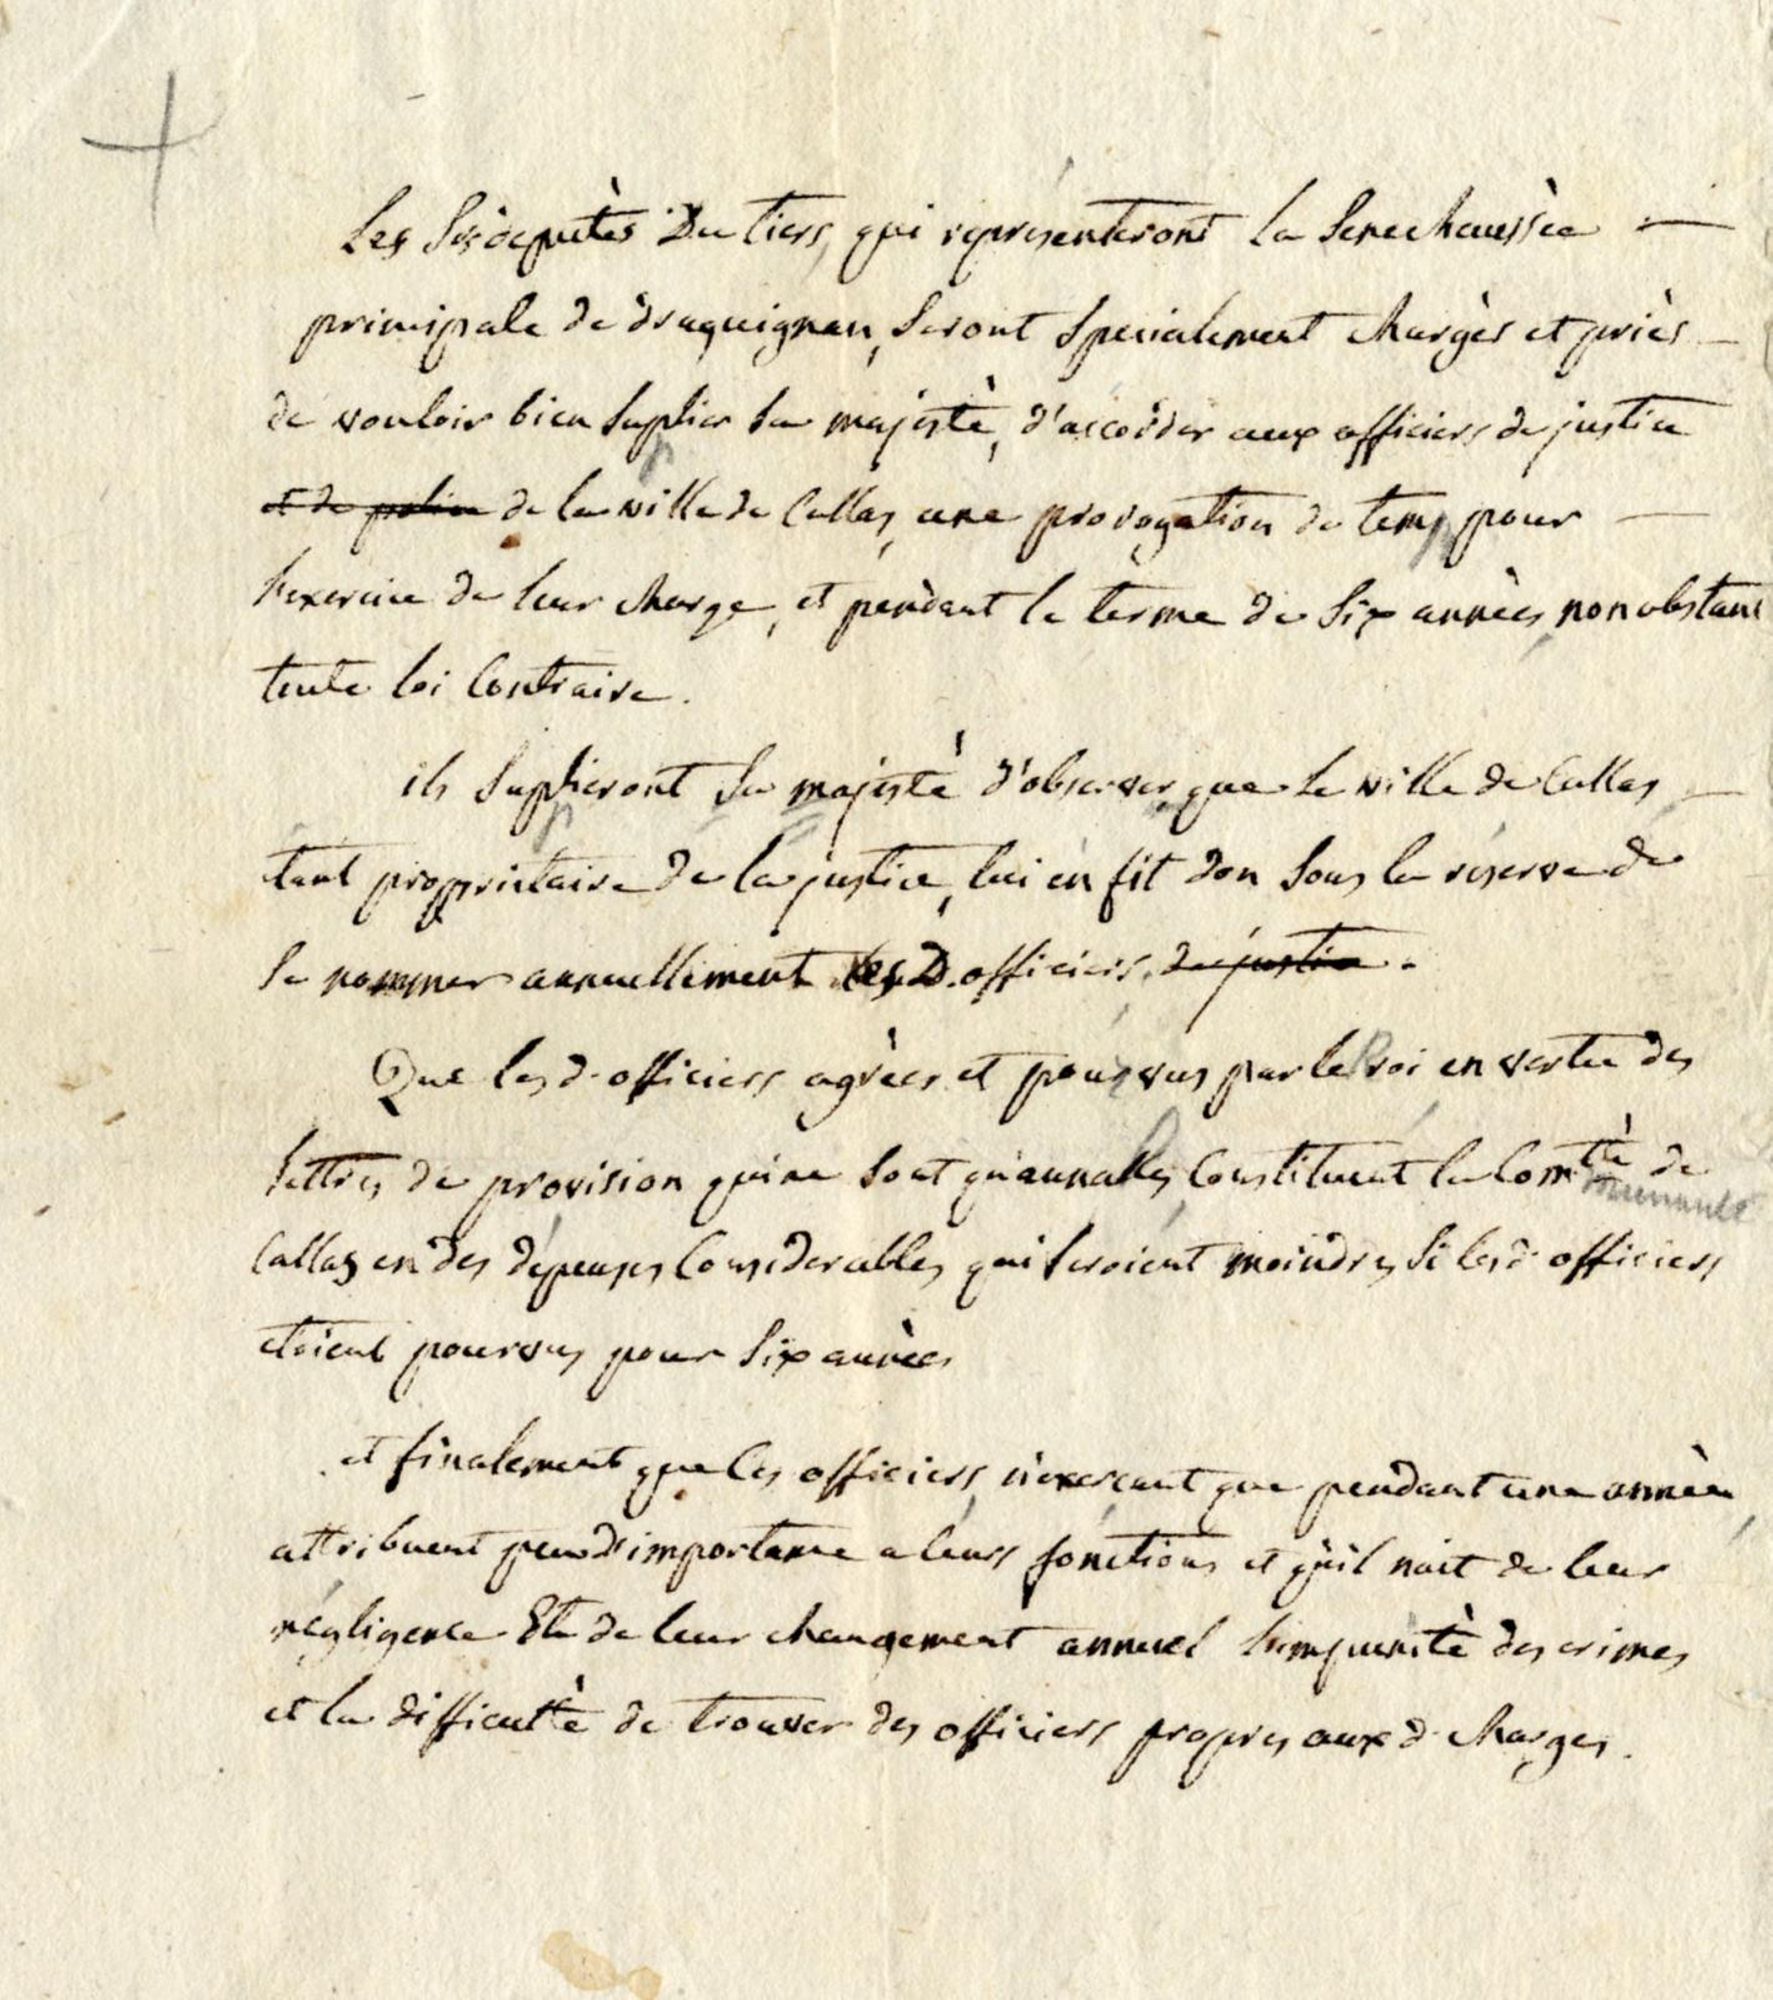 Les Srs députès Du tiers, qui représenteront la Senechaussèe
principale de draguignan, Seront Specialement chargès et prièr
de vouloir bien Suplier Sa majestè, d'accorder aux officiers de justice
et de police de la ville de Callas, une prorogation de tems pour
l'exercice de leur charge, et pendant le tèrme de Six annèes, nonobstant
toute loi Contraire.
ils Suplieront Sa majestè d'observer, que la ville de Callas
tant propriétaire de la justice, lui en fit don Sous la réserve de
Se nommer annuellement les D. officiers de justice.
Que les d. officiers agrèes et pourvus par le Roi en vertu des
lettres de provision qui ne Sont qu'annalles, Constituent la Comtè de
munauté
Callas en des dépenses Considerables, qui Seroient moindres Si les d. officiers
etoient pourvus pour Six annèes
et finalement que les officiers n'exercant que pendant une annèe,
attribuent peu d'importance a leurs fonctions et qu'il nait de leur
négligence Et de leur changement annuel l'impunitè des crimes
et la difficultè de trouver des officiers propres aux d. charges.